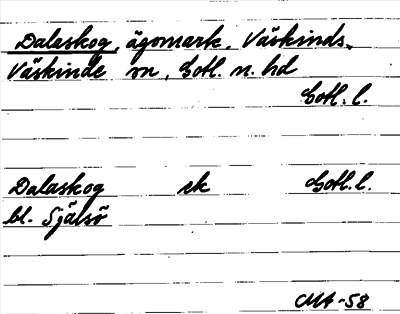 Dalaskog, ägomark, Väskinds,
Väskinde sn, Gotl. n. hd
Gotl. l.
Dalaskog ek Gotl. l.
bl. Själsö
CMA-58